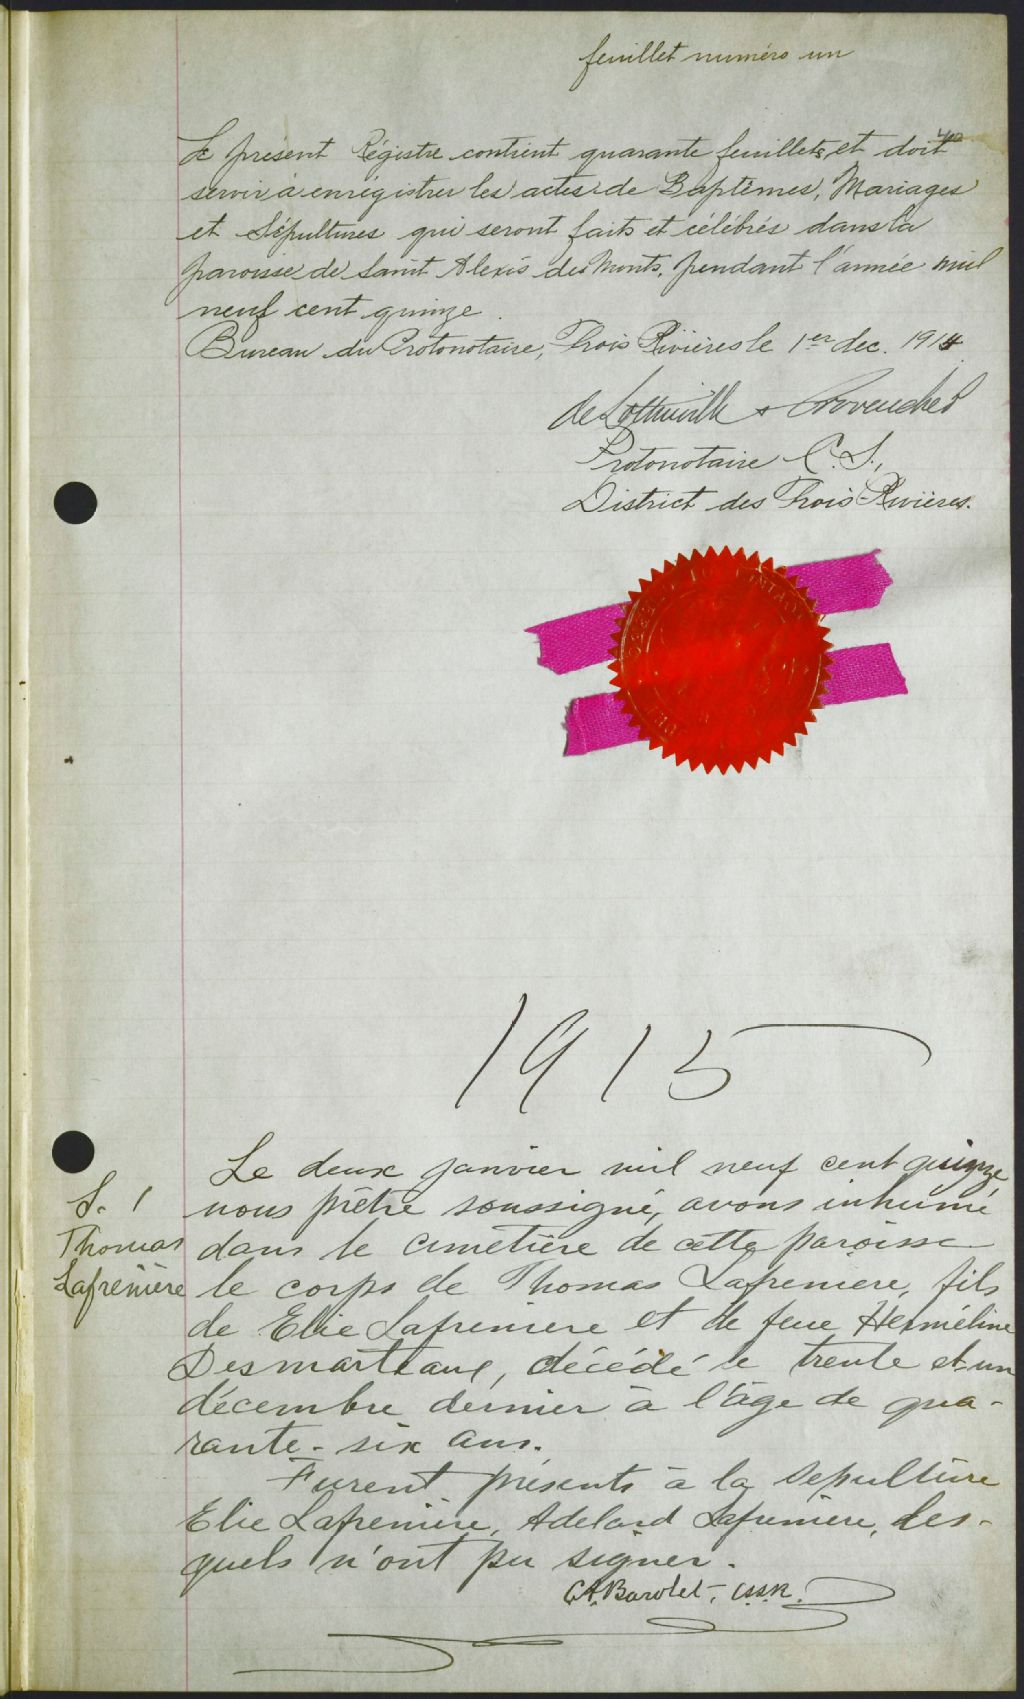 feuillet numéro un
40
Le présent Régistre contient quarante feuillets et doit
servir à enrégistrer les actes de Baptêmes, Mariages
et Sépultures qui seront faits et célébrés dans la
paroisse de Saint Alexis des Monts, pendant l'année mil
neuf cent quinze.
Bureau du Protonotaire, Trois Rivières le 1er dec. 1914
de Lottinville & Provencher
Protonotaire C.S.,
District des Trois Rivières.
1915
Le deux janvier mil neuf cent quinze
S. 1
nous prêtre soussigné, avons inhumé
Thomas
dans le cimetière de cette paroisse
Lafrenière
le corps de Thomas Lafreniere, fils
de Elie Lafreniere et de feue Herméline
Desmarteaux, décédé le trente et un
décembre dernier à l'âge de qua-
rante-six ans.
Furent présents à la sepulture
Elie Lafreniere, Adelard Lafreniere, les-
quels n'ont pu signer.
C.A. Barolet, C.SS.R.